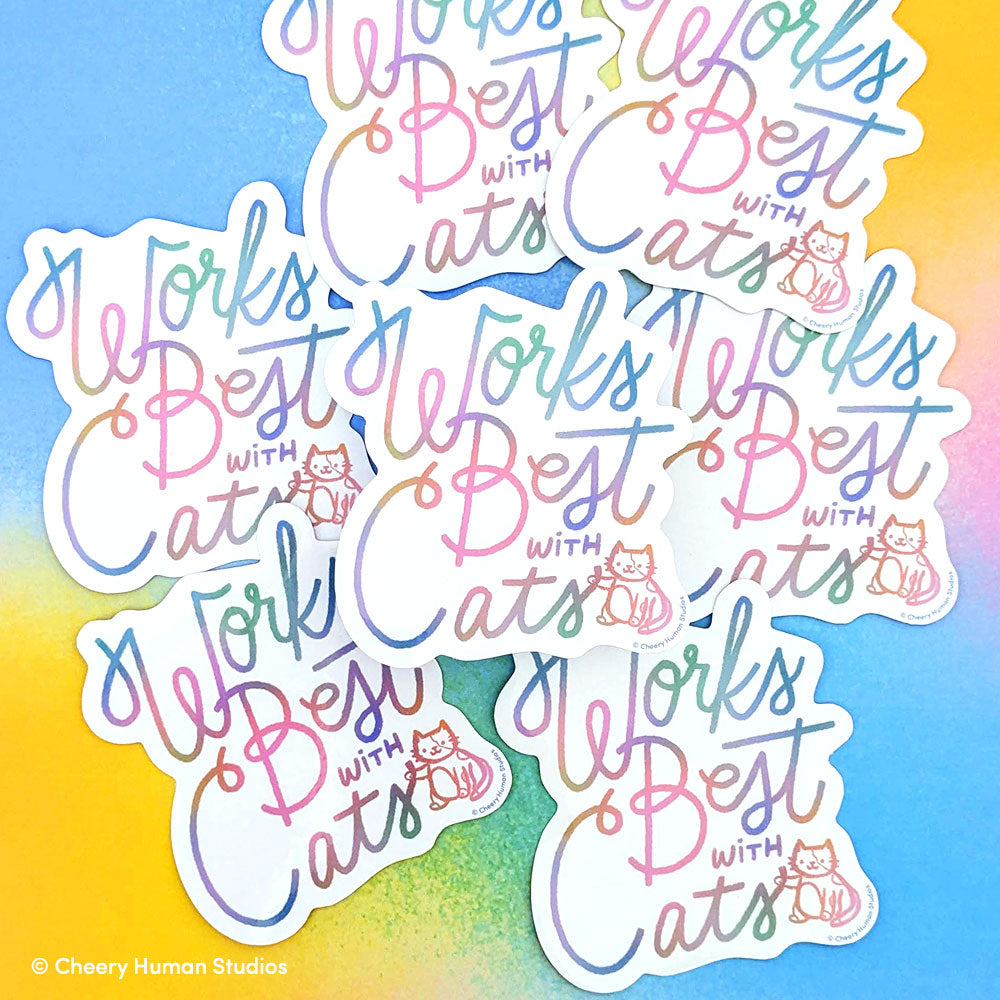 Works
Best
with
Cats
Works
Best
with
Cats
© Cheery Human Studios
Works
Best
with
Cats
Works
Best
with
Cats
© Cheery Human Studios
Works
Best
with
Cats
© Cheery Human Studios
Work
Best
with
Cats
© Cheery Human Studios
Works
Best
with
Cats
© Cheery Human Studios
© Cheery Human Studios